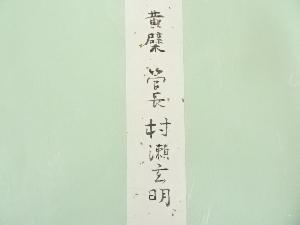 黄檗 管長 村瀬玄明